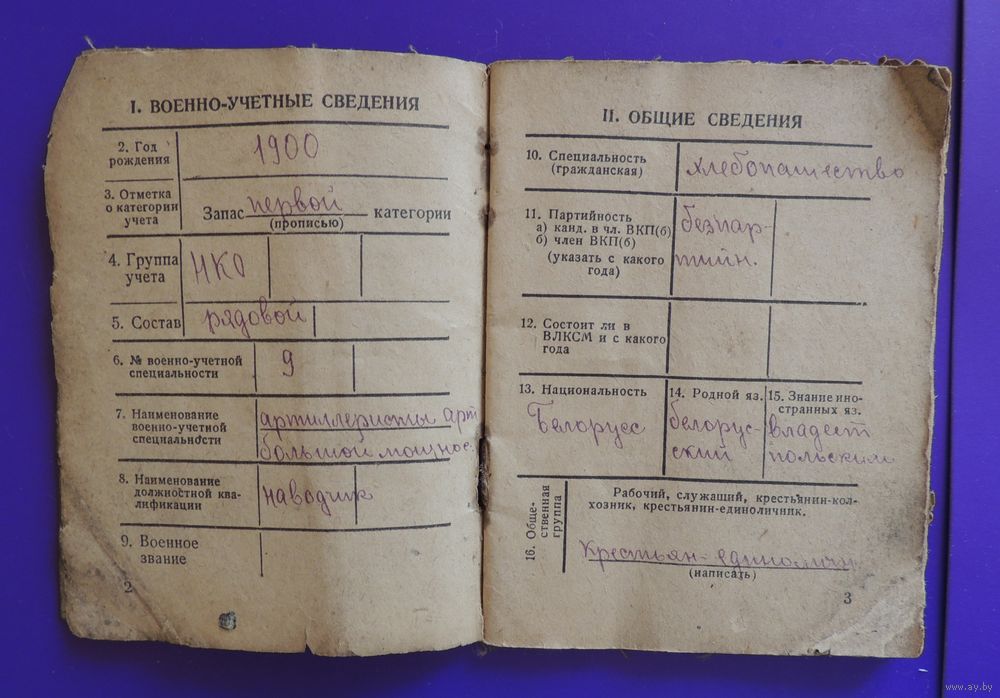 I. ВОЕННО-УЧЕТНЫЕ СВЕДЕНИЯ
2. Год
рождения
1900
3. Отметка
о категории
учета
Запас первой категории
(прописью)
4. Группа
учета
НКО
5. Состав
рядовой
6. № военно-учетной
специальности
9
7. Наименование
военно-учетной
специальности
артиллеристы арт
большой мощнос-
8. Наименование
должностной ква-
лификации
наводчик
9. Военное
звание
2
II. ОБЩИЕ СВЕДЕНИЯ
10. Специальность
(гражданская)
хлебопашество
11. Партийность
а) канд. в чл. ВКП(б)
б) член ВКП(б)
(указать с какого
года)
безпар-
тийн.
12. Состоит ли в
ВЛКСМ и с какого
года
13. Национальность
Белорусс
14. Родной яз.
белорус-
ский
15. Знание ино-
странных яз.
владеет
польским
16. Обще-
ственная
группа
Рабочий, служащий, крестьянин-кол-
хозник, крестьянин-единоличник.
крестьян-единоличн
(написать)
3
www.ay.by